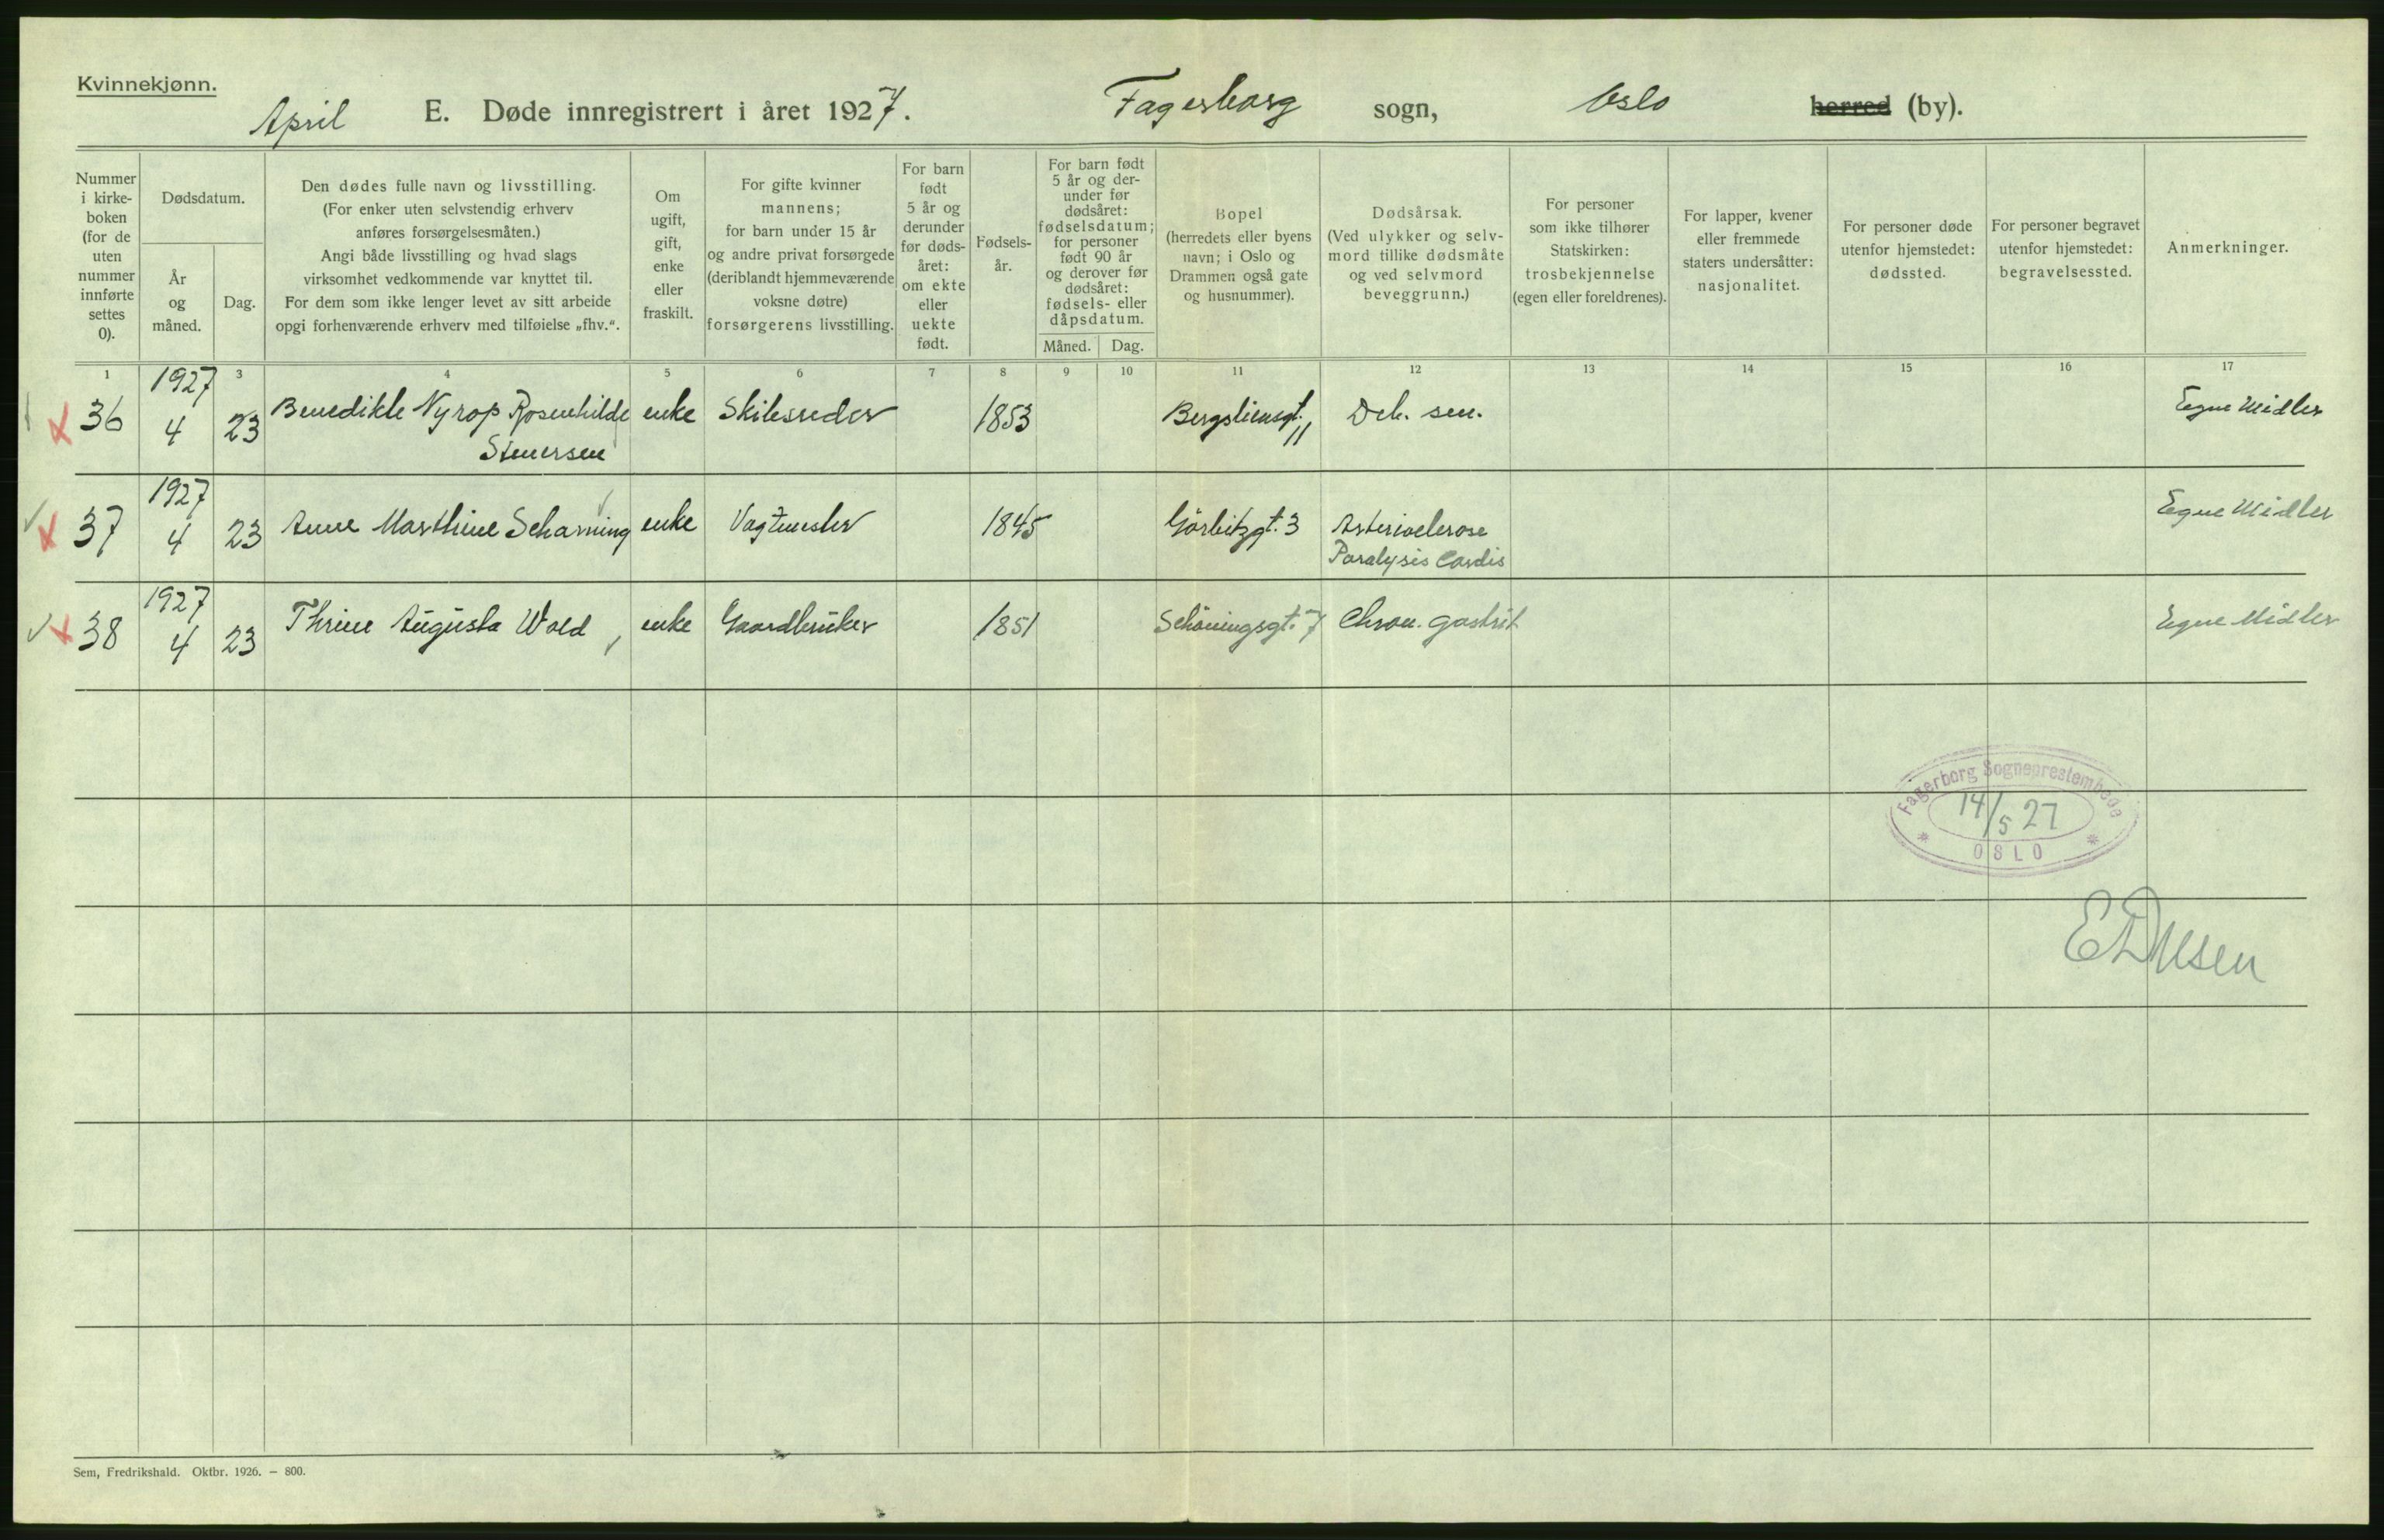 Kvinnekjønn.
April E. Døde innregistrert i året 1927. Fagerborg sogn, Oslo herred (by).
Nummer i kirke-boken (for de uten nummer innførte settes 0).
Dødsdatum.
År og måned.
Dag.
Den dødes fulle navn og livsstilling.
(For enker uten selvstendig erhverv
anføres forsørgelsesmåten.)
Angi både livsstilling og hvad slags
virksomhet vedkommende var knyttet til.
For dem som ikke lenger levet av sitt arbeide
opgi forhenværende erhverv med tilføielse „fhv.“.
Om
ugift,
gift,
enke
eller
fraskilt.
For gifte kvinner
mannens;
for barn under 15 år
og andre privat forsørgede
(deriblandt hjemmeværende
voksne døtre)
forsørgerens livsstilling.
For barn
født
5 år og
derunder
før døds-
året:
om ekte
eller
uekte
født.
Fødsels-
år.
For barn født
5 år og der-
under før
dødsåret:
fødselsdatum;
for personer
født 90 år
og derover før
dødsåret:
fødsels- eller
dåpsdatum.
Måned. Dag.
Bopel
(herredets eller byens
navn; i Oslo og
Drammen også gate
og husnummer).
Dødsårsak.
(Ved ulykker og selv-
mord tillike dødsmåte
og ved selvmord
beveggrunn.)
For personer
som ikke tilhører
Statskirken:
trosbekjennelse
(egen eller foreldrenes).
For lapper, kvener
eller fremmede
staters undersåtter:
nasjonalitet.
For personer døde
utenfor hjemstedet:
dødssted.
For personer begravet
utenfor hjemstedet:
begravelsessted.
Anmerkninger.
1 3 4 5 6 7 8 9 10 11 12 13 14 15 16 17
36 1927 4 23 Benedikte Nyrop Rosenhilde enke Skibsreder 1853 Bergsliensgt. 11 Deb. sen. Egne Midler
Stenersen
37 1927 4 23 Anne Marthine Scharning enke Vagtmester 1845 Görbitzgt. 3 Arteriosclerose Egne Midler
Paralysis Cordis
38 1927 4 23 Thrine Augusta Wold, enke Gaardbruker 1851 Schöningsgt. 7 Chron. gastrit Egne Midler
Fagerborg Sogneprestembede
14/5 27
OSLO
Sem, Fredrikshald. Oktbr. 1926. – 800.